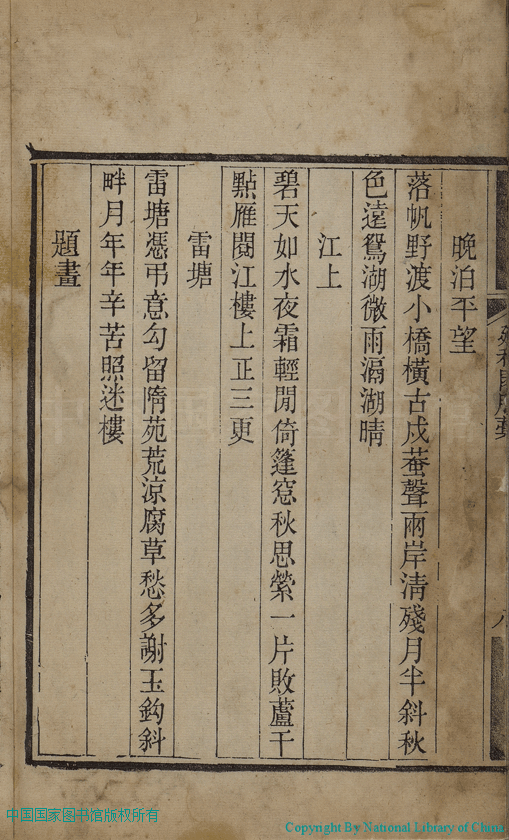 晚泊平望
落帆野渡小橋橫古戍蛬聲兩岸淸殘月半斜秋
色遠鴛湖微雨滆湖晴
江上
碧天如水夜霜輕閒倚篷窓秋思縈一片敗蘆千
點雁閱江樓上正三更
雷塘
雷塘憑弔意勾留隋苑荒涼腐草愁多謝玉鈎斜
畔月年年辛苦照迷樓
題畫
中国国家图书馆版权所有
Copyright By National Library of China